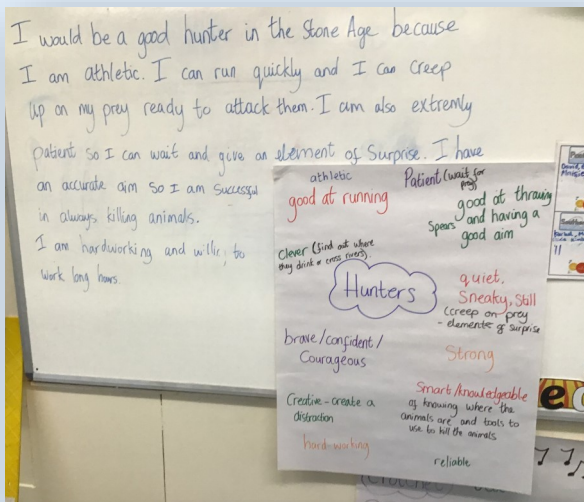 I would be a good hunter in the Stone Age because
I am athletic. I can run quickly and I can creep
up on my prey ready to attack them. I am also extremly
patient so I can wait and give an element of Surprise. I have
an accurate aim so I am successful
in always killing animals.
I am hardworking and to
work long hours.
athletic
good at running
Patient (wait for
prey)
good at throwing
Spears and having a
good aim
Clever (find out where
they drink or cross rivers).
Hunters
quiet.
Sneaky, Still
(creep on prey
- elemente of surprise
brave/confident/
Courageous
Strong
Creative - create a
distraction
Smart/knowledgeable
of knowing where the
animals are and tools to
use to kill the animals
hard-working
reliable